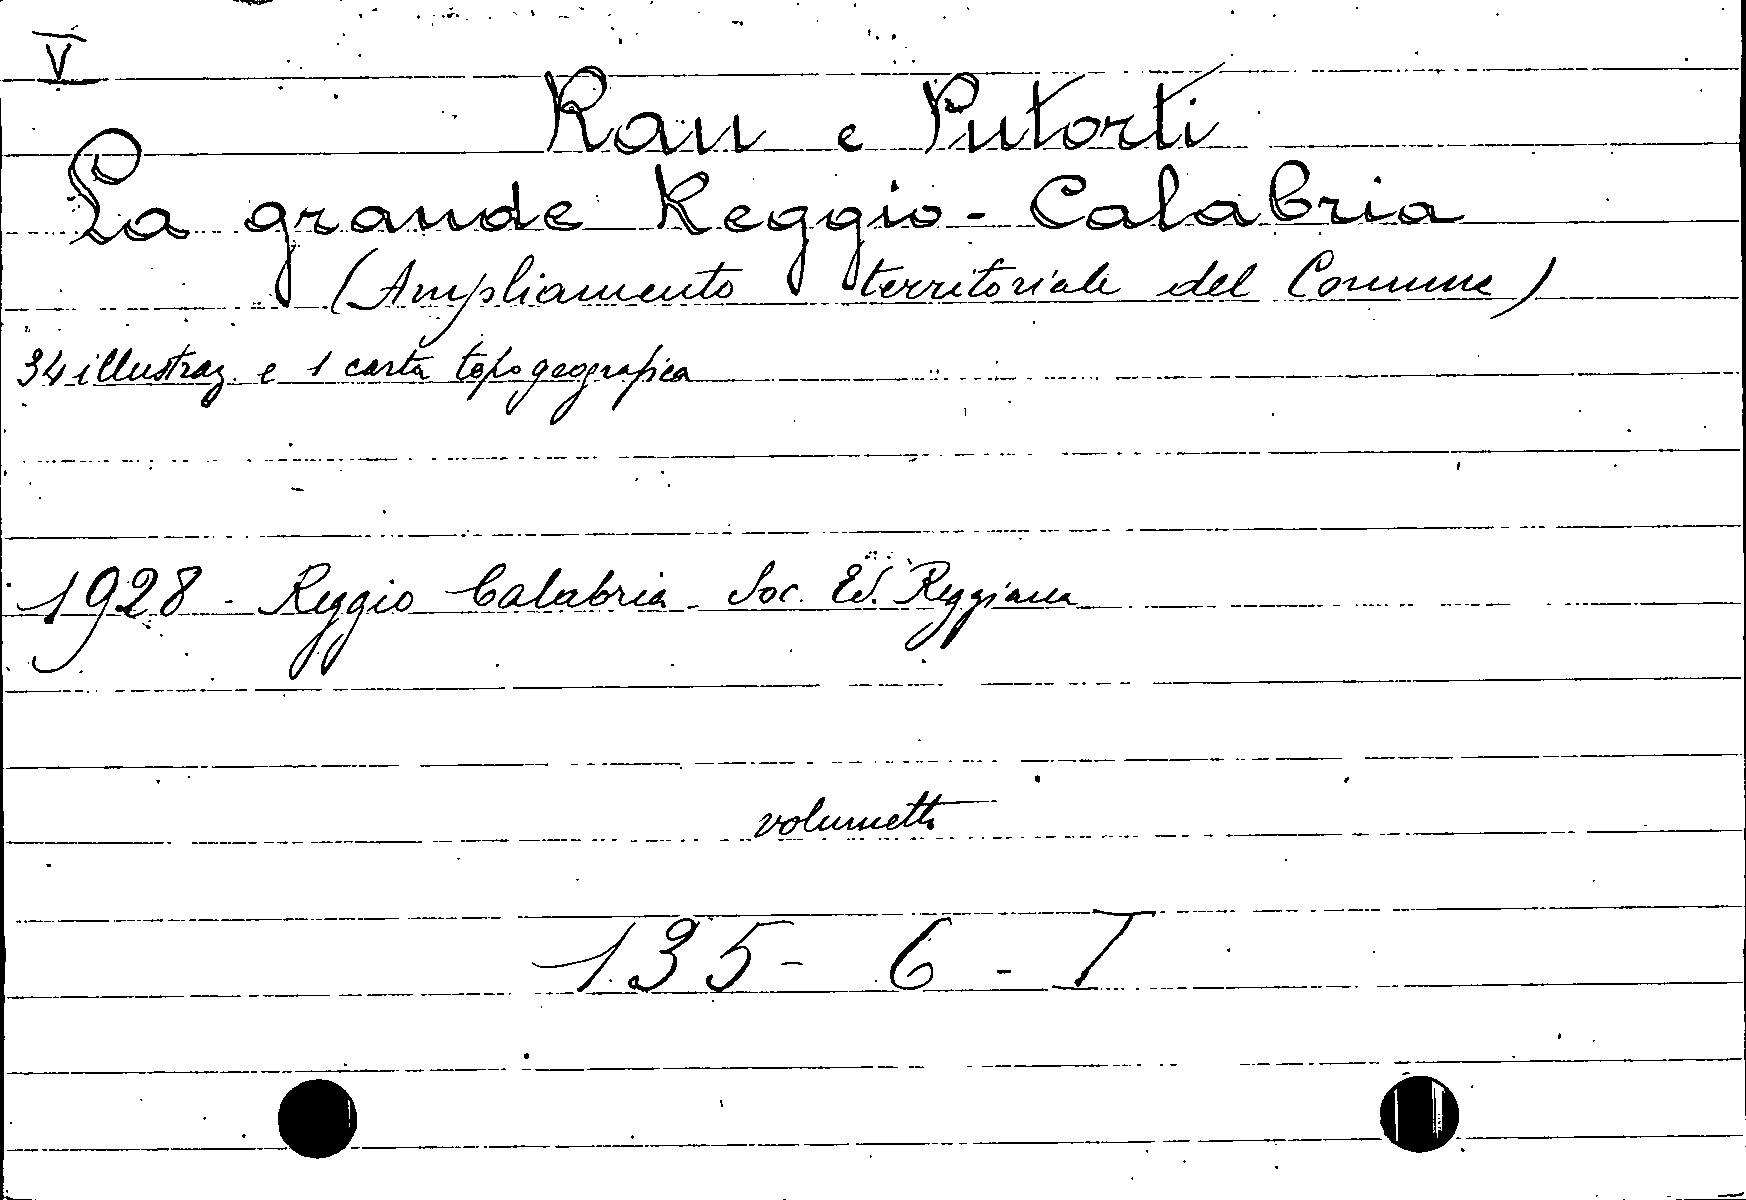 V
Rau e Putortì
La grande Reggio-Calabria
(Ampliamento territoriale del Comune)
34 illustraz. e 1 carta topogeografica
1928 - Reggio Calabria - Soc. Ed. Reggiana
volumetto
135 - 6 - I